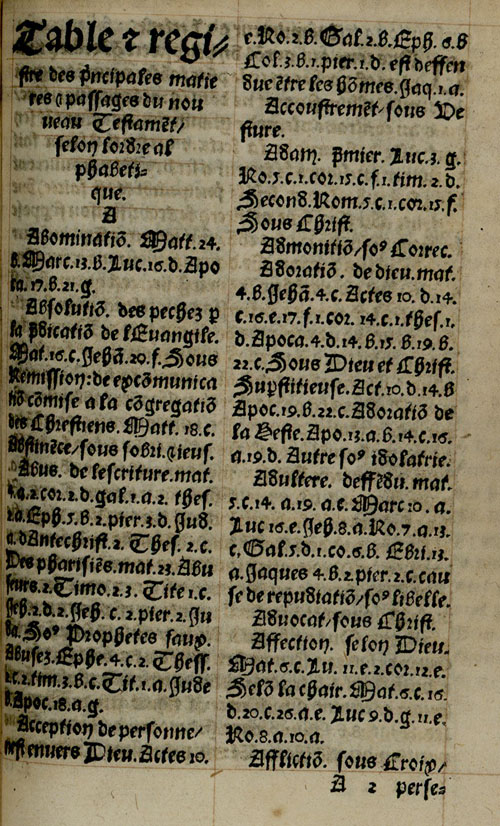 Table ⁊ regi⸗
stre des p̃ncipales matie
res ꝗ passages du nou
ueau Testamẽt/
selon lordre al
phabeti⸗
que.
A
Abominatiõ. Matt.24.
b.Marc.13.b.Luc.16.d.Apo
ca.17.b.21.g.
Absolutiõ. des pechez p
la p̃dicatiõ de lEuangile.
Mat.16.c.Jehã.20.f.Sous
Remission:de excõmunica
tiõ cõmise a la cõgregatiõ
des Chrestiens. Matt. 18.c.
Abstinẽce/sous sobri.ꝗ ieus.
Abus. de lescriture.mat.
4.a.2cor.2.d.gal.1.a.2. thes.
2.a.Eph.5.b.2.pier.3.d.Jud.
a.dAntechrist.2.Thes.2.c.
Des pharisiẽs.mat.23.Abu
seurs.2.Timo.2.3. Tite 1.c.
Jeh.2.d.2.Jeh. c. 2.pier.2.Ju
da.Soꝰ Prophetes faux.
Abusez.Ephe.4.c.2. Thess.
2.c.2.tim.3.b.c.Tit.1.a.Jude
b.Apoc.18.a.g.
Acception de personne/
nest enuers Dieu.Actes 10.
e.Ro.2.b.Gal.2.b.Eph.6.b
Col.3.b.1.pier.1.d. est deffen
due ẽtre les hõmes.Jaq.1.a.
Accoustremẽt/sous Ve
sture.
Adam. p̃mier. Luc.3. g.
Ro.5.c.1.cor.15.c.f.1.tim. 2.d.
Second.Rom.5.c.1.cor.15.f.
Sous Christ.
Admonitiõ/soꝰ Correc.
Adoratiõ. de dieu.mat.
4.b.Jehã.4.c. Actes 10. d.14.
c.16.e.17.f.1.cor. 14.c.1.thes.1.
d.Apoca.4.d.14.b.15.b.19.b.
22.c.Sous Dieu et Christ.
Sup̱stitieuse.Act.10.d.14.b
Apoc.19.b.22.c.Adoratiõ de
la Beste.Apo.13.a.b.14.c.16.
a.19.d. Autre soꝰ idolatrie.
Adultere. deffẽdu.mat.
5.c.14. a.19. a.e.Marc 10. a.
Luc 16.e.Jeh.8.a.Ro.7.a.13.
c,Gal.5.d.1.co.6.b. Ebri.13.
a.Jaques 4.b.2 pier.2.c.cau
se de repudiatiõ/soꝰ libelle.
Aduocat/sous Christ.
Affection. selon Dieu.
Mat.6.c.Lu. 11.e.2.cor.12.e.
Selõ la chair. Mat.6.c.16.
d.20.c.26.a.e. Luc 9.d.g.11.e.
Ro.8.a.10.a.
Afflictiõ. sous Croix/
A 2 perse⸗